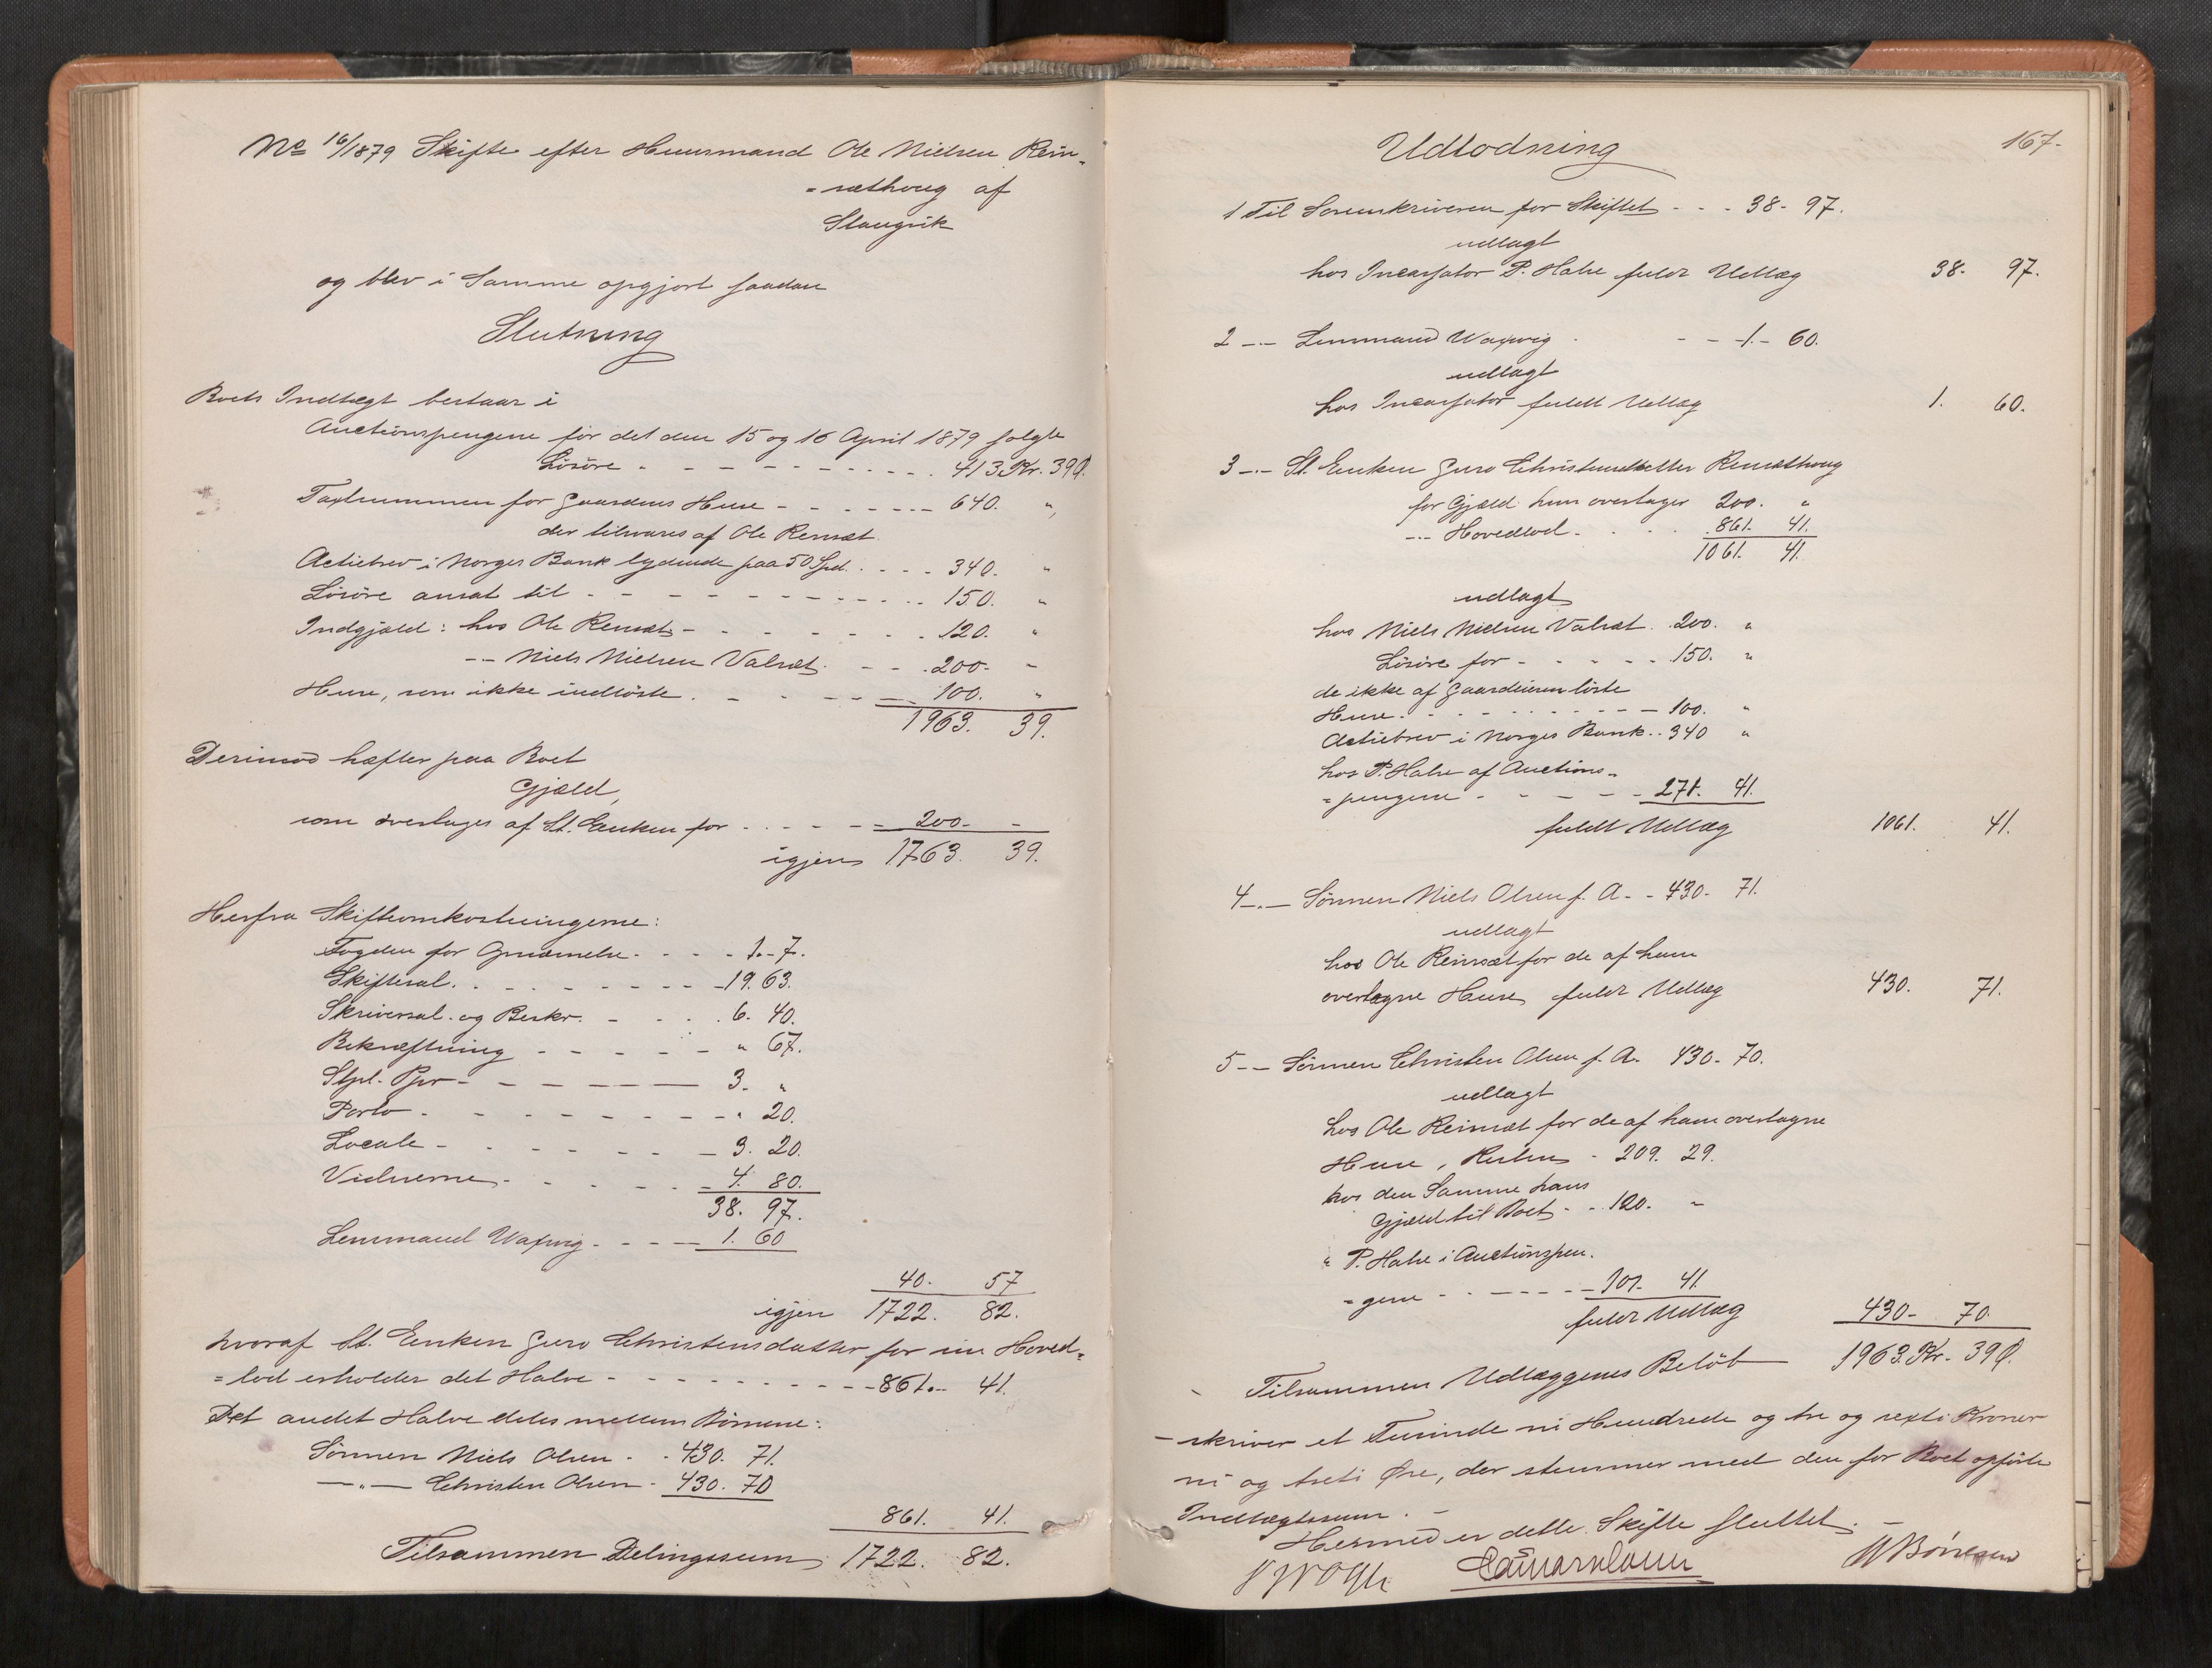 No 16/1879 Skifte efter Huusmand Ole Nielsen Rein-
= sæthoug af
Slaugvik
og blev i Samme opgjort saadan
Slutning
Boets Indtægt bestaar i
Auctionspengene for det den 15 og 16 April 1879 solgte
Løsøre - - - - - - 413 Kr. 39 Ø.
Taxtsummen for Gaardens Huse - - - - - 640. "
der tilsvares af Ole Reinsæt
Actiebrev i Norges Bank lydende paa 50 Spd. - - - 340. "
Løsøre ansat til - - - - - - 150. "
Indgjæld: hos Ole Reinsæt - - - - - 120. "
-"- Niels Nielsen Valsæt. - - - 200. -
Huse, som ikke indløste. - - - - 100. "
1963. 39.
Derimod hæfter paa Boet
Gjæld,
som overtages af St. Enken for - - - - 200. -
igjen 1763. 39.
Herfra Skifteomkostningerne:
Fogden for Opnævnelse - - - - 1. 7.
Skiftesal. - - - - - - 19. 63.
Skriversal. og Beskr. - - - 6. 40.
Bekræftning - - - - - " 67.
Stpl. Ppr - - - - - 3. "
Porto - - - - - - " 20.
Locale - - - - - - 3. 20.
Vidnerne - - - - - 4. 80.
38. 97.
Lensmand Waxvig - - - - 1. 60
40. 57
igjen 1722. 82.
hvoraf St. Enken Guro Christensdatter for sin Hoved=
= lod erholder det Halve - - - - - - 861. 41.
Det andet Halve deles mellem Børnene:
Sønnen Niels Olsen - - 430. 71.
-"- Christen Olsen - 430. 70
861. 41.
Tilsammen Delingssum 1722. 82.
167.
Udlodning
1 Til Sorenskriveren for Skiftet - - - 38. 97.
udlagt
hos Incassator P. Halse fuldt Udlæg 38. 97.
2 -"- Lensmand Waxvig - - - 1. 60.
udlagt
hos Incassator fuldt Udlæg 1. 60.
3 -"- St. Enken Guro Christensdatter Reinsæthoug
for Gjæld hun overtager 200. "
-"- Hovedlod - - - 861. 41.
1061. 41.
udlagt
hos Niels Nielsen Valsæt. 200. "
Løsøre for - - - - - 150. "
de ikke af Gaardeieren løste
Huse. - - - - - - 100. "
Actiebrev i Norges Bank.. 340 "
hos P. Halse af Auctions-
= pengene - - - - - 271. 41.
fuldt Udlæg 1061. 41.
4 -"- Sønnen Niels Olsen f. A. - - 430. 71.
udlagt
hos Ole Reinsæt for de af ham
overtagne Huse fuldt Udlæg 430. 71.
5 -- Sønnen Christen Olsen f. A. 430. 70.
udlagt
hos Ole Reinsæt for de af ham overtagne
Huse, Resten - 209. 29.
hos den Samme hans
Gjæld til Boet - - 120. -
" P. Halse i Auctionspen.
= gene - - - - - 101. 41
fuldt Udlæg 430. 70.
Tilsammen Udlæggenes Beløb 1963 Kr. 39 Ø.
- skriver et Tusinde ni Hundrede og tre og sexti Kroner
ni og treti Øre, der stemmer med den for Boet opførte
Indtægtssum. -
Hermed er dette Skifte sluttet. -